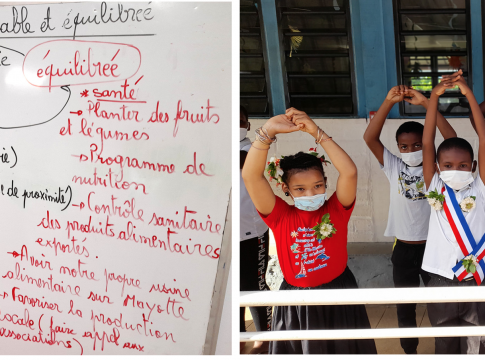 able et équilibrée
ie
équilibrée
* santé
→ Planter des fruits
et légumes
ie)
→ Programme de
nutrition
e de proximité)
→ Contrôle sanitaire
des produits alimentaires
exportés.
→ Avoir notre propre usine
alimentaire sur Mayotte
→ Favoriser la production
locale (faire appel aux
associations)